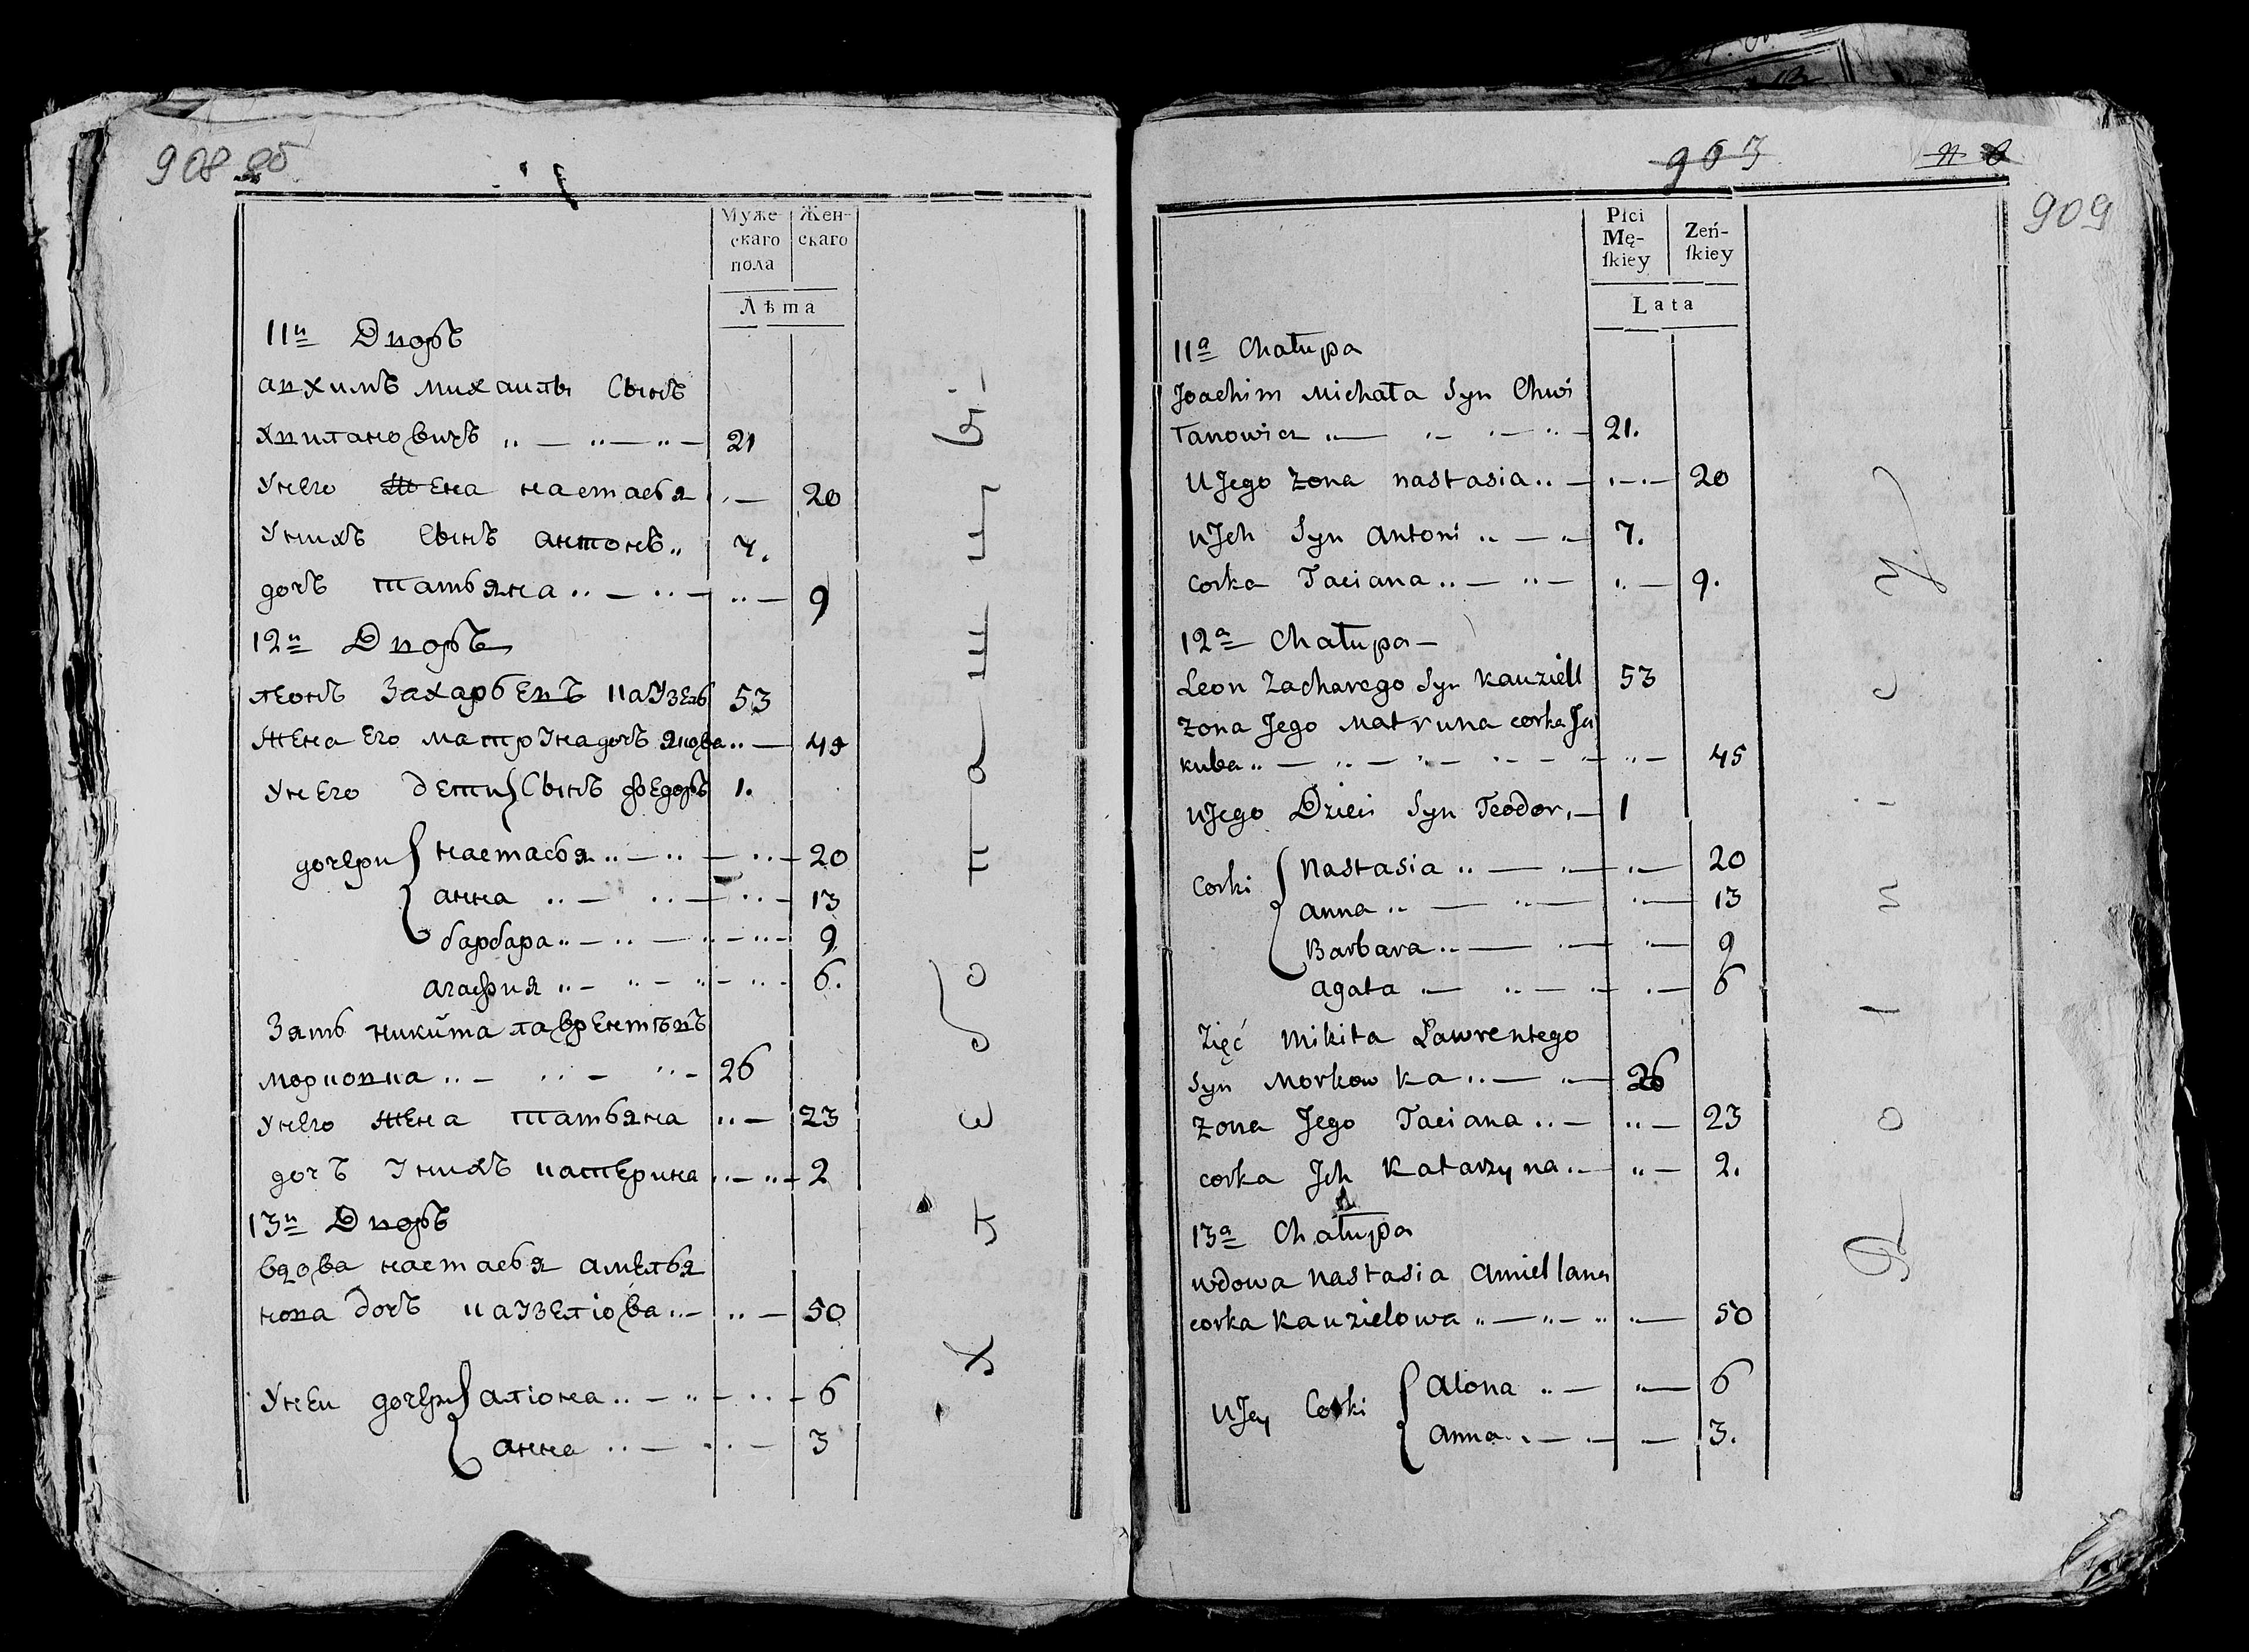 908 об
Муже-
скаго
пола
Жен-
скаго
Лѣта
11й Дворъ
Авхимъ Михаилы Сынъ
Хвилановичъ 21
Унего Жена настасья 20
Унихъ Сынъ антонъ 7.
дочь татьяна 9
12й Дворъ
леонъ Захарьевъ каузель 53
Жена Его матрунадочь якова 45
Унего дети Сынъ федоръ 1.
дочери настасья 20
анна 13
барбара 9
агафия 6.
Зять никита лаврентьевъ
морковка 26
унего Жена татьяна 23
дочь Унихъ катерина 2
13й Дворъ
вдова настасья амелья
нова дочь каузелюва 50
Унеи дочери алiона 6
анна 3
Хлебопашцы
903
909
Płci
Mę-
ſkiey
Zeń-
ſkiey
Lata
11a Chałupa
Joachim Michała Syn Chwi
łanowicz 21.
UJego Zona nastasia 20
uJch Syn Antoni 7.
corka Taciana 9.
12a Chałupa
Leon Zacharego Syn Kauziell 53
Zona Jego Matruna corka Ja
kuba 45
uJego Dzieci Syn Teodor 1
Corki nastasia 20
anna 13
Barbara 9
agata 6
Zięć Mikita Ławrentego
Syn Morkowka 26
Zona Jego Taciana 23
corka Jch Katarzyna 2.
13a Chałupa
wdowa nastasia Amiellana
corka Kauzielowa 50
UJey Corki Alona 6
Anna 3.
Rolnicy